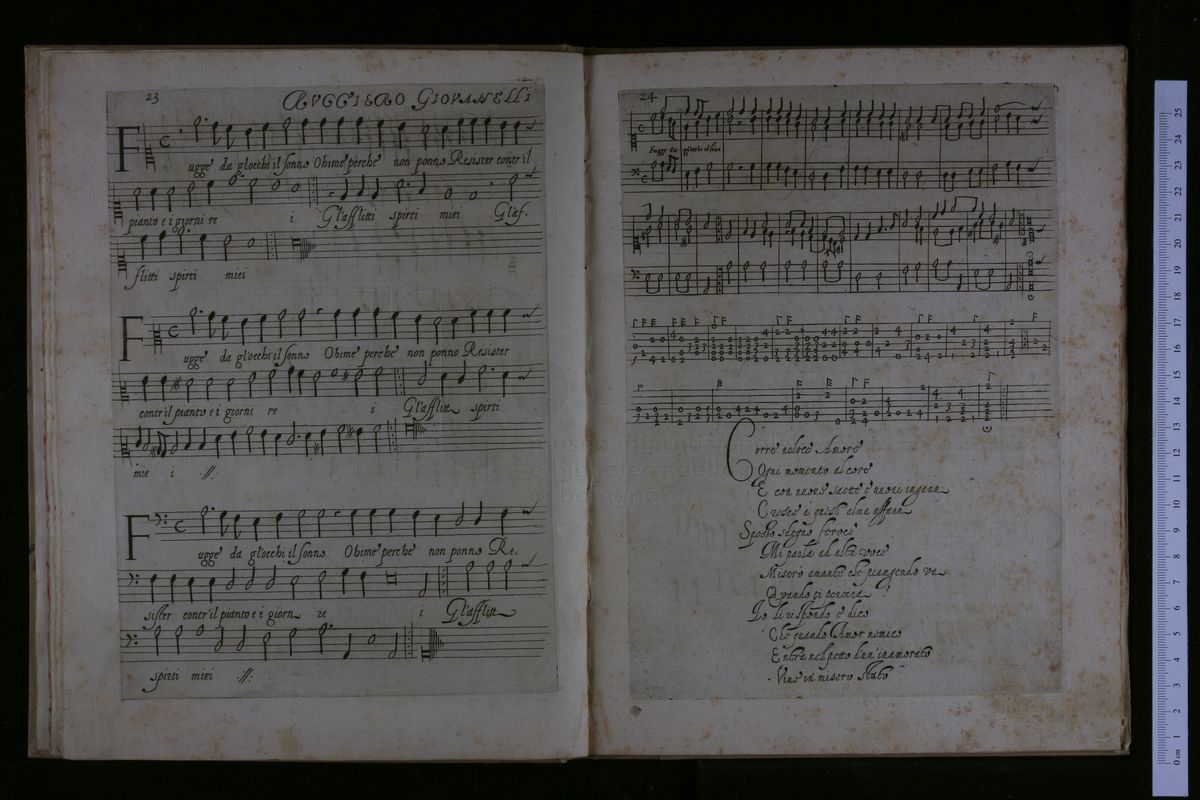 23
RVGGIERO GIOVANELLI
Fugge da gl'occhi il sonno Ohime perche non ponno Resister contr'il
pianto e i giorni re i Gl'afflitti spirti miei Gl'af-
flitti spirti miei
Fugge da gl'occhi il sonno Ohime perche non ponno Resister
contr'il pianto e i giorni re i Gl'afflitti spirti
mie i :||:
Fugge da gl'occhi il sonno Ohime perche non ponno Re-
sister contr'il pianto e i giorn re i Gl'afflitti
spirti miei :||:
24
Fugge da gl'occhi il sono
Corre veloce Amore
Ogni momento al core
E con nuove saette e nuovi inganni
Cresce a quest' alma affanni
Spesso sdegno feroce
Mi parla ad alta voce
Misero amante che piangendo va
Quando ti
Io li rispondo e dico
Che quando Amor nemico
Entra nel petto d'un' inamorato
Vive in misero stato